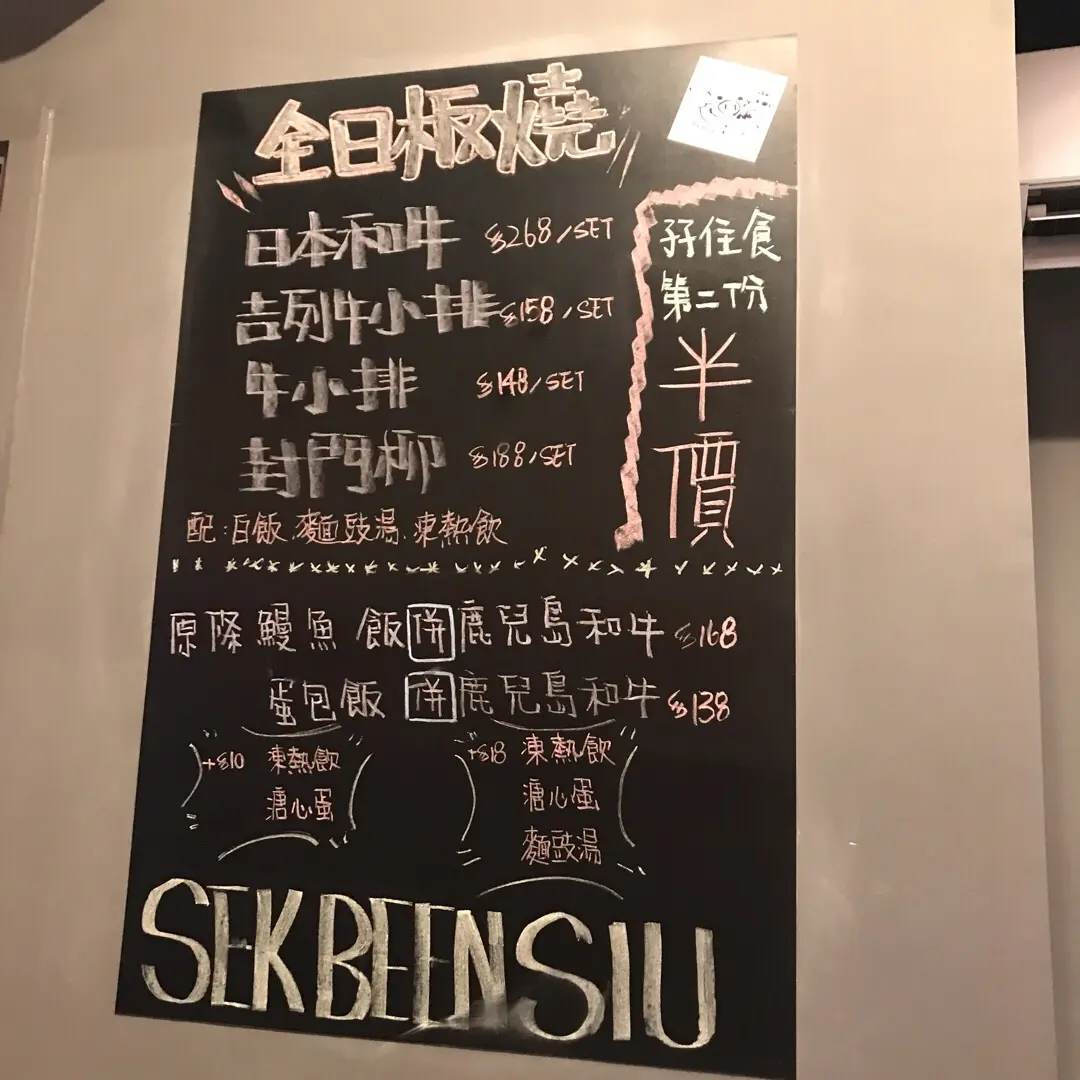 全日板燒
日本和牛 $268/SET
吉列牛小排 $158/SET
牛小排 $148/SET
封門柳 $188/SET
配:白飯.麵豉湯.凍熱飲
孖住食
第二份
半
價
原條鰻魚飯拼鹿兒島和牛 $168
蛋包飯拼鹿兒島和牛 $138
+$10 凍熱飲
溏心蛋
+$18 凍熱飲
溏心蛋
麵豉湯
SEKBEENSIU